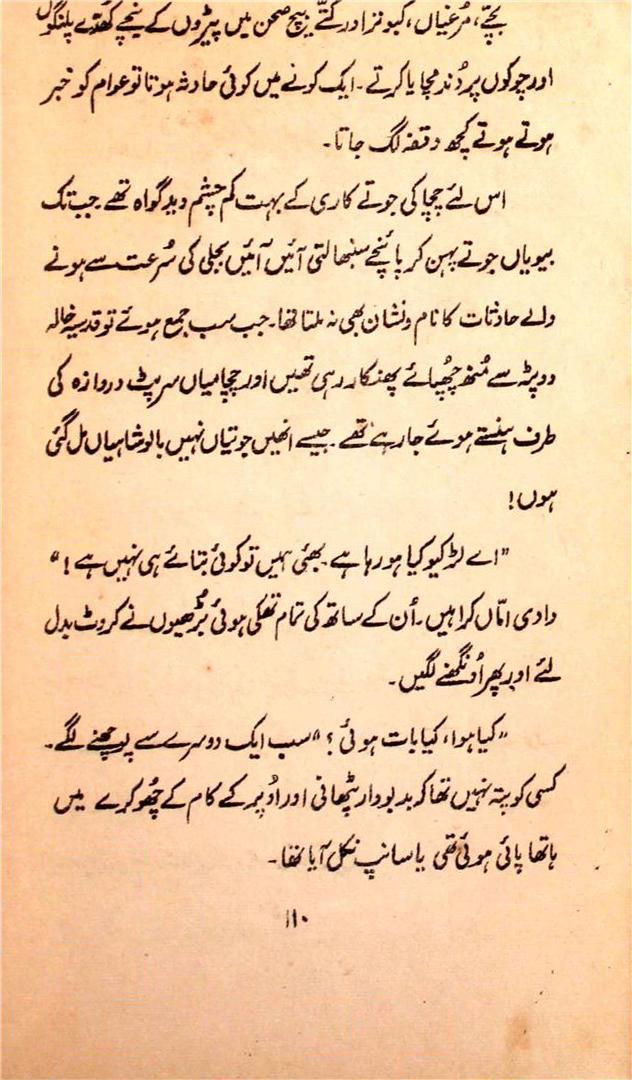 بچّے، مرُغیاں، کبوتر اور کتّے بیچ صحن میں پیڑوں کے نیچے کھُدّے پلنگوں
اور چوکوں پر دُند مچایا کرتے ۔ ایک کونے میں کوئی حادثہ ہوتا تو عوام کو خبر
ہوتے ہوتے کچھ وقفہ لگ جاتا۔
اس لئے چچا کی جوتے کاری کے بہت کم چشم دید گواہ تھے۔ جب تک
بیویاں جوتے پہن کر پائنچے سنبھالتی آئیں آئیں بجلی کی سُرعت سے ہونے
والے حادثات کا نام ونشان بھی نہ ملتا تھا۔ جب سب جمع ہوئے تو قدسیہ خالہ
دوپٹہ سے مُنھ چھُپائے پھنکار رہی تھیں اور چچا میاں سرپٹ دروازہ کی
طرف ہنستے ہوئے جا رہے تھے ۔ جیسے انھیں جوتیاں نہیں بالوشاہیاں مل گئی
ہوں!
”اے لڑکیو کیا ہو رہا ہے۔ بھئی ہمیں تو کوئی بتائے ہی نہیں ہے!“
دادی امّاں کراہیں۔ اُن کے ساتھ کی تمام تھکی ہوئی بُڑھیوں نے کروٹ بدل
لئے اور پھر اُونگھنے لگیں۔
”کیا ہوا، کیا بات ہوئی؟“ سب ایک دوسرے سے پوچھنے لگے۔
کسی کو پتہ نہیں تھا کہ بدبودار پٹھانی اور اُوپر کے کام کے چھوکرے میں
ہاتھا پائی ہوئی تھی یا سانپ نکل آیا تھا۔
۱۱۰